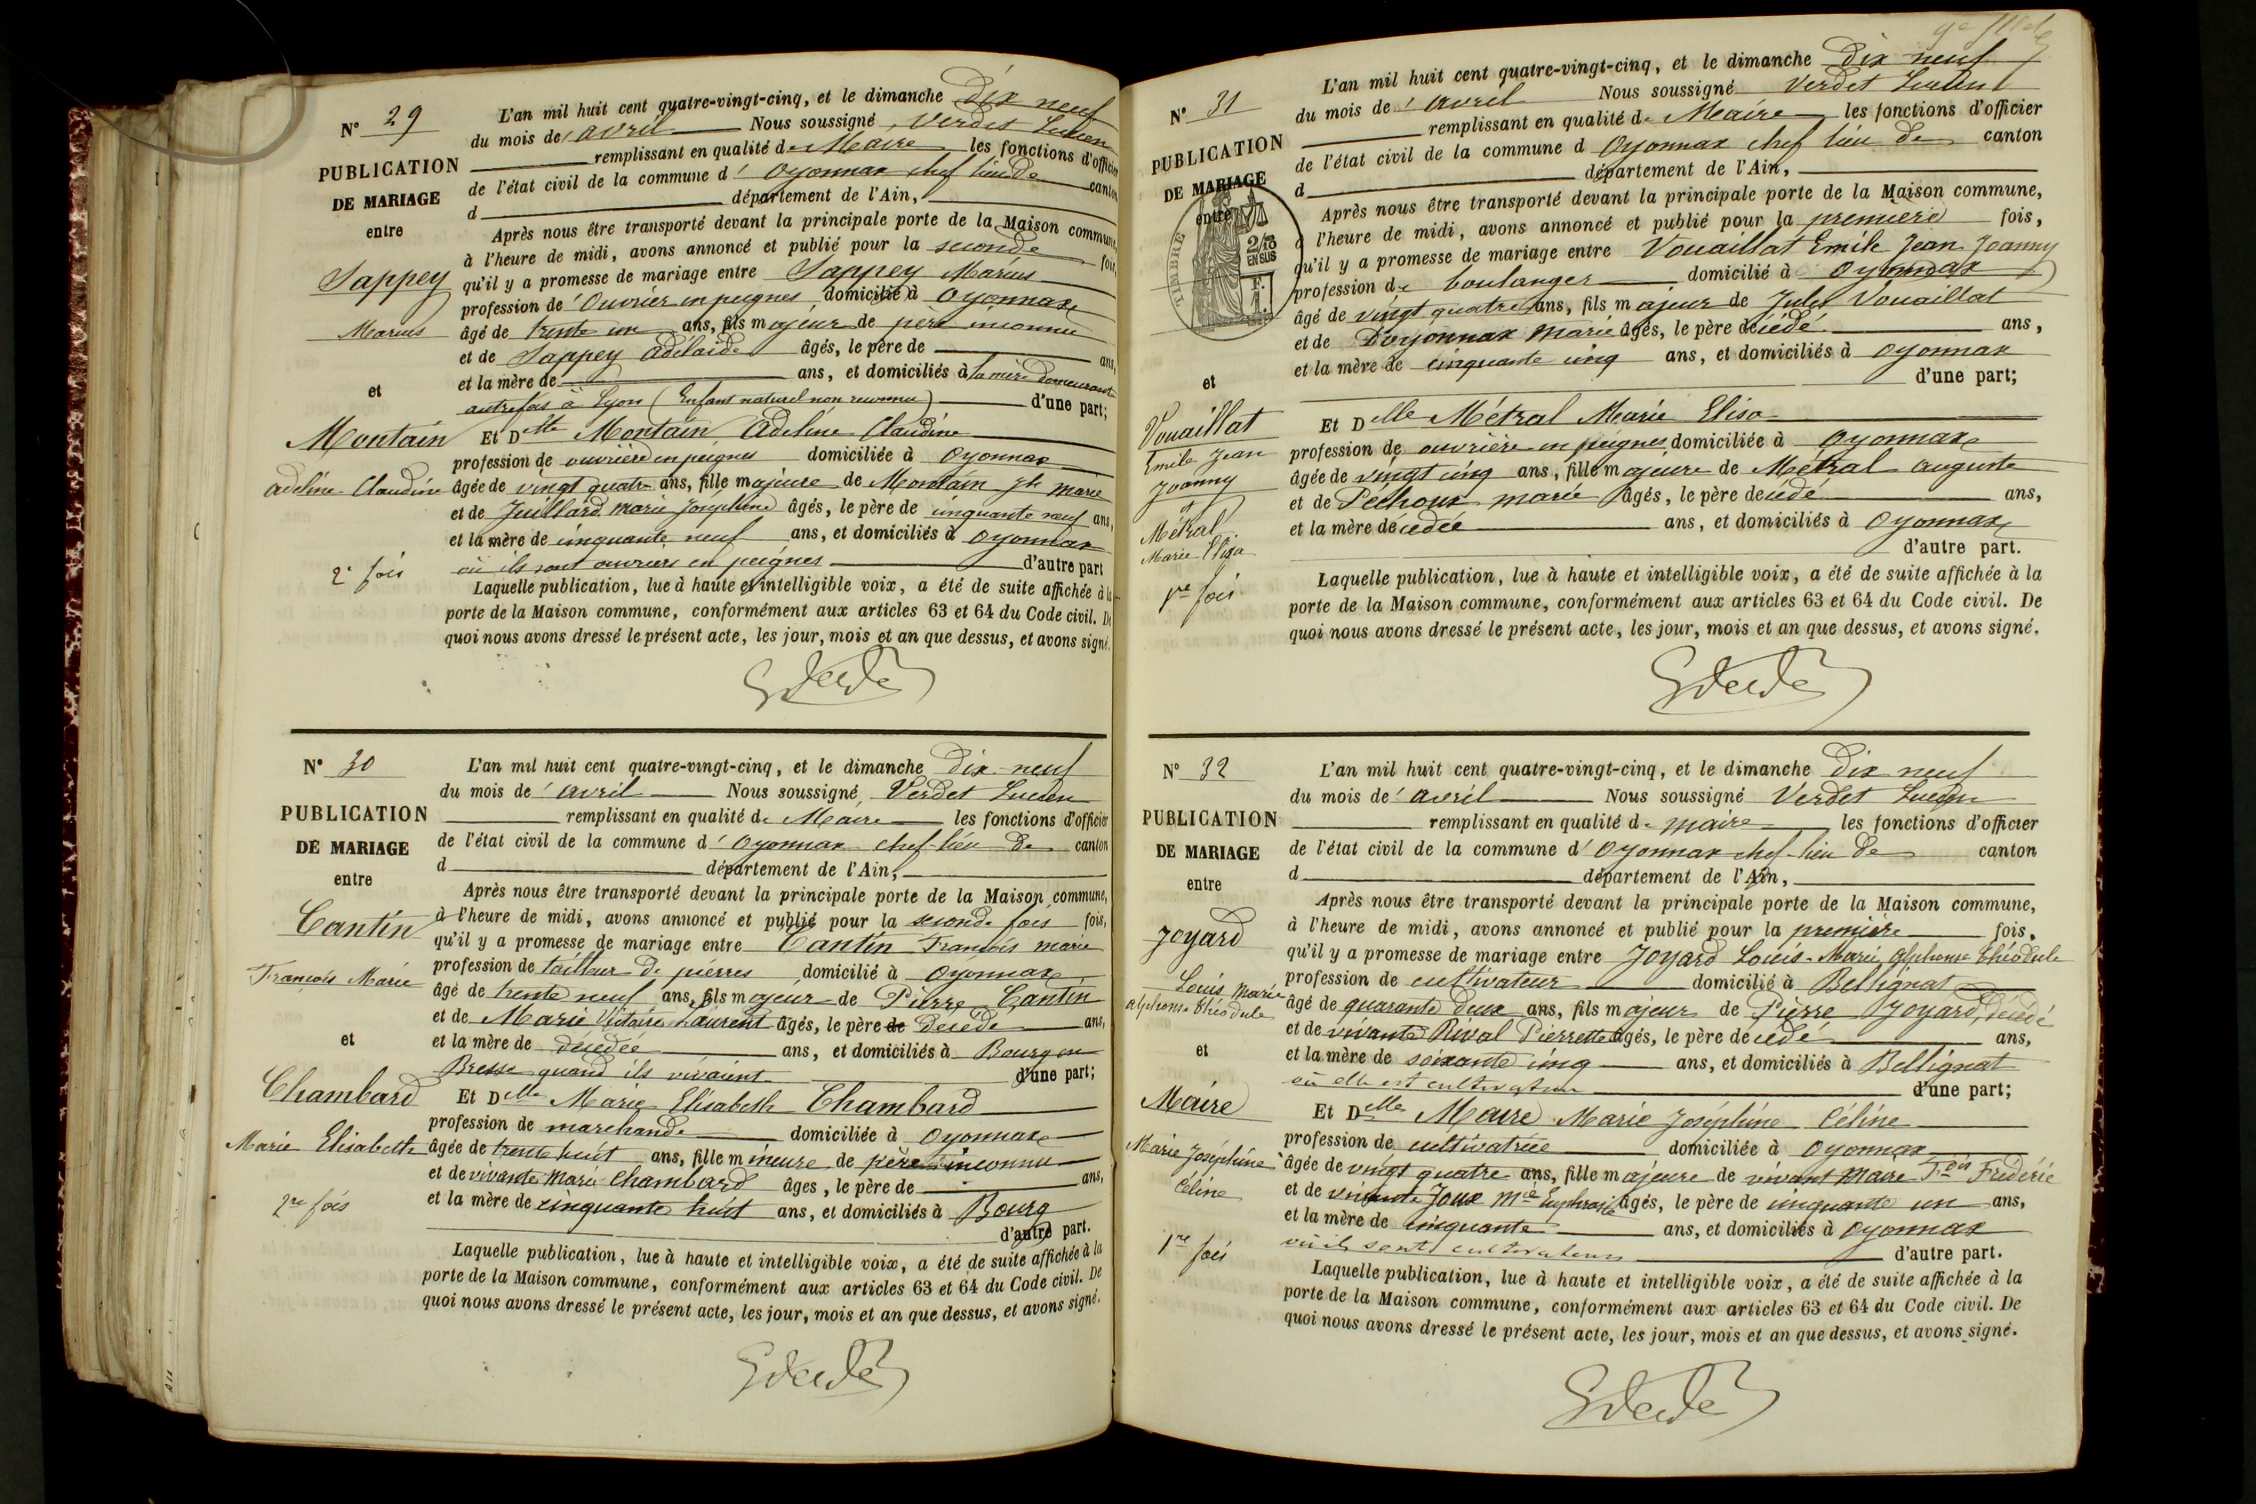 N° 29
PUBLICATION
DE MARIAGE
entre
Sappey
Marius
et
Montain
Adeline Claudine
2e fois
L'an mil huit cent quatre-vingt-cinq, et le dimanche Dix neuf
du mois de avril Nous soussigné, Verdet Lucien
remplissant en qualité de Maire les fonctions d'officier
de l'état civil de la commune d' Oyonnax chef lieu de canton
d département de l'Ain,
Après nous être transporté devant la principale porte de la Maison commune,
à l'heure de midi, avons annoncé et publié pour la seconde fois,
qu'il y a promesse de mariage entre Sappey Marius
profession de Ouvrier en peignes domicilié à Oyonnax
âgé de trente un ans, fils majeur de père inconnu
et de Sappey Adélaïde âgés, le père de ans,
et la mère de ans, et domiciliés à la mère demeurant
autrefois à Lyon (Enfant naturel non reconnu) d'une part;
Et Delle Montain Adeline Claudine
profession de ouvrière en peignes domiciliée à Oyonnax
âgée de vingt quatre ans, fille majeure de Montain Jh Marie
et de Juillard Marie Joséphine âgés, le père de cinquante neuf ans,
et la mère de cinquante neuf ans, et domiciliés à Oyonnax
où ils sont ouvriers en peignes d'autre part
Laquelle publication, lue à haute et intelligible voix, a été de suite affichée à la
porte de la Maison commune, conformément aux articles 63 et 64 du Code civil. De
quoi nous avons dressé le présent acte, les jour, mois et an que dessus, et avons signé.
N° 30
PUBLICATION
DE MARIAGE
entre
Cantin
François Marie
et
Chambard
Marie Elisabeth
2me fois
L'an mil huit cent quatre-vingt-cinq, et le dimanche Dix-neuf
du mois de avril Nous soussigné, Verdet Lucien
remplissant en qualité de Maire les fonctions d'officier
de l'état civil de la commune d' Oyonnax chef-lieu de canton
d département de l'Ain,
Après nous être transporté devant la principale porte de la Maison commune,
à l'heure de midi, avons annoncé et publié pour la seconde fois fois,
qu'il y a promesse de mariage entre Cantin François Marie
profession de tailleur de pierres domicilié à Oyonnax
âgé de trente neuf ans, fils majeur de Pierre Cantin
et de Marie Victoire Laurent âgés, le père de décédé ans,
et la mère de décédée ans, et domiciliés à Bourg en
Bresse quand ils vivaient d'une part;
Et Delle Marie Elisabeth Chambard
profession de marchande domiciliée à Oyonnax
âgée de trente huit ans, fille mineure de père inconnu
et de vivante Marie Chambard âges, le père de ans,
et la mère de cinquante huit ans, et domiciliés à Bourg
d'autre part.
Laquelle publication, lue à haute et intelligible voix, a été de suite affichée à la
porte de la Maison commune, conformément aux articles 63 et 64 du Code civil. De
quoi nous avons dressé le présent acte, les jour, mois et an que dessus, et avons signé.
N° 31
PUBLICATION
DE MARIAGE
entre
TIMBRE
2/10
EN SUS
et
Vouaillat
Emile Jean
Joanny
et
Métral
Marie Elisa
1re fois
L'an mil huit cent quatre-vingt-cinq, et le dimanche Dix neuf
du mois de avril Nous soussigné Verdet Lucien
remplissant en qualité de Maire les fonctions d'officier
de l'état civil de la commune d Oyonnax chef lieu de canton
d département de l'Ain,
Après nous être transporté devant la principale porte de la Maison commune,
à l'heure de midi, avons annoncé et publié pour la première fois,
qu'il y a promesse de mariage entre Vouaillat Emile Jean Joanny
profession de boulanger domicilié à Oyonnax
âgé de vingt quatre ans, fils majeur de Jules Vouaillat
et de Doyonnax Marie âgés, le père décédé ans,
et la mère de cinquante cinq ans, et domiciliés à Oyonnax
d'une part;
Et Delle Métral Marie Elisa
profession de ouvrière en peignes domiciliée à Oyonnax
âgée de vingt cinq ans, fille majeure de Métral Auguste
et de Péchoux Marie âgés, le père décédé ans,
et la mère décédée ans, et domiciliés à Oyonnax
d'autre part.
Laquelle publication, lue à haute et intelligible voix, a été de suite affichée à la
porte de la Maison commune, conformément aux articles 63 et 64 du Code civil. De
quoi nous avons dressé le présent acte, les jour, mois et an que dessus, et avons signé.
N° 32
PUBLICATION
DE MARIAGE
entre
Joyard
Louis Marie
alphonse Théodule
et
Maire
Marie Joséphine
Céline
1re fois
L'an mil huit cent quatre-vingt-cinq, et le dimanche Dix neuf
du mois de avril Nous soussigné Verdet Lucien
remplissant en qualité de maire les fonctions d'officier
de l'état civil de la commune d' Oyonnax chef-lieu de canton
d département de l'Ain,
Après nous être transporté devant la principale porte de la Maison commune,
à l'heure de midi, avons annoncé et publié pour la première fois,
qu'il y a promesse de mariage entre Joyard Louis-Marie alphonse Théodule
profession de cultivateur domicilié à Bellignat
âgé de quarante deux ans, fils majeur de Pierre Joyard, décédé
et de vivante Rival Pierrette âgés, le père décédé ans,
et la mère de soixante cinq ans, et domiciliés à Bellignat
où elle est cultivatrice d'une part;
Et Delle Maire Marie Joséphine Céline
profession de cultivatrice domiciliée à Oyonnax
âgée de vingt quatre ans, fille majeure de vivant Maire Fçois Frédéric
et de vivante Joux Mie Euphrasie âgés, le père de cinquante un ans,
et la mère de cinquante ans, et domiciliés à Oyonnax
où ils sont cultivateurs d'autre part.
Laquelle publication, lue à haute et intelligible voix, a été de suite affichée à la
porte de la Maison commune, conformément aux articles 63 et 64 du Code civil. De
quoi nous avons dressé le présent acte, les jour, mois et an que dessus, et avons signé.